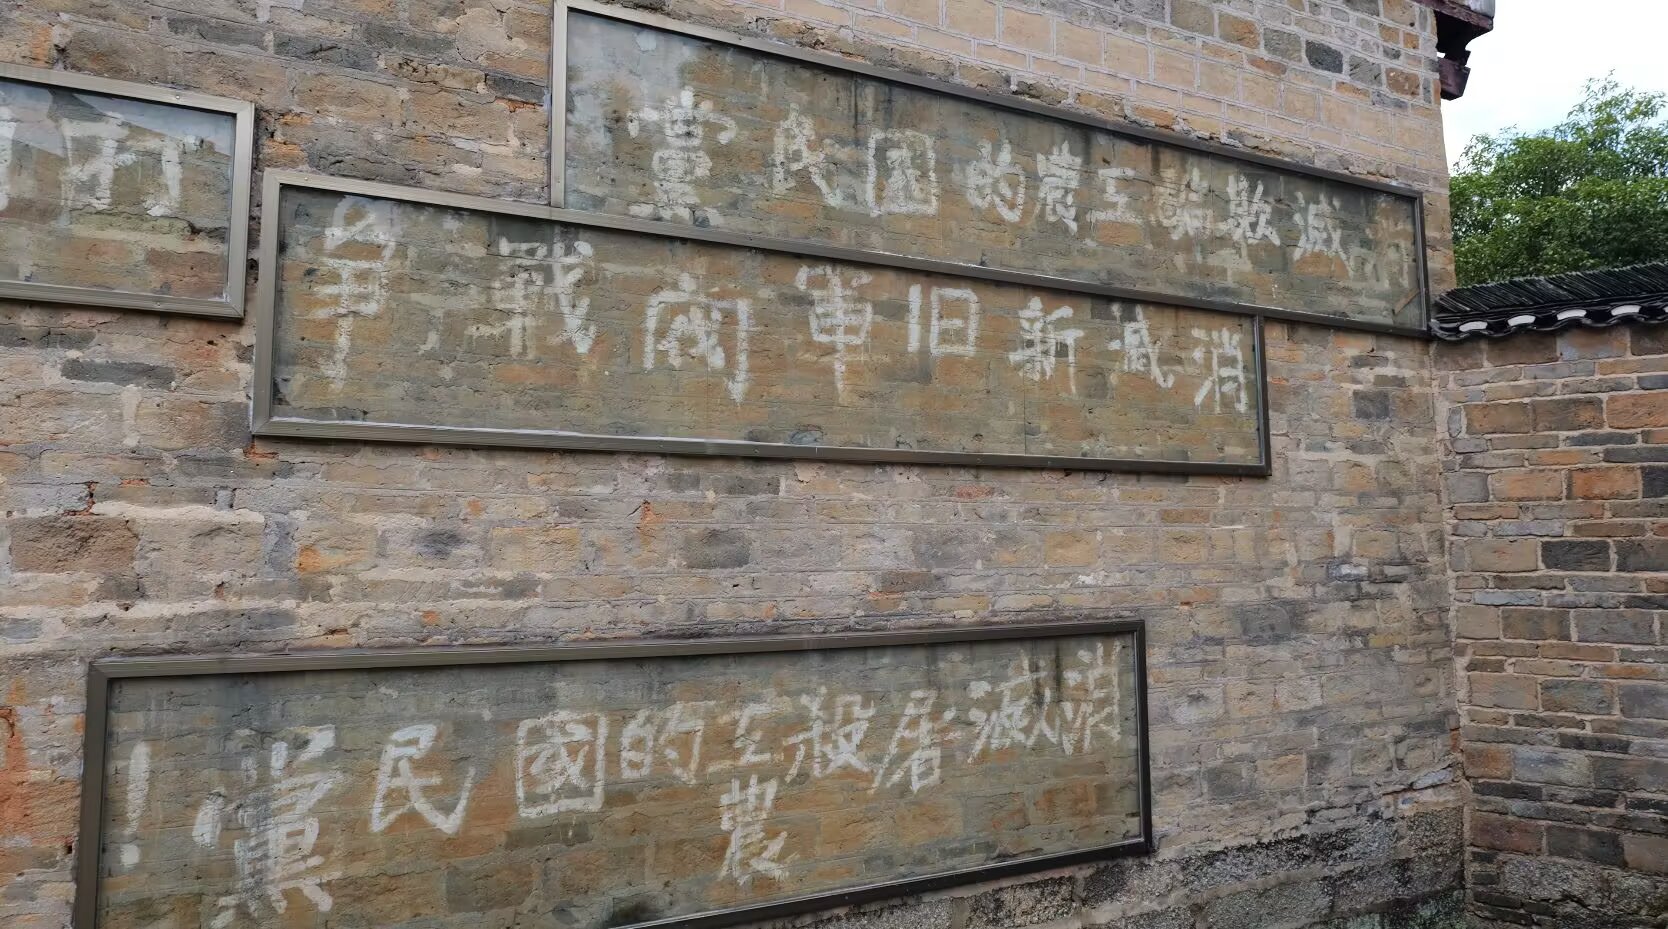 消滅欺騙工農的國民黨
消滅新旧軍閥戰爭
消滅屠殺工農的國民黨!